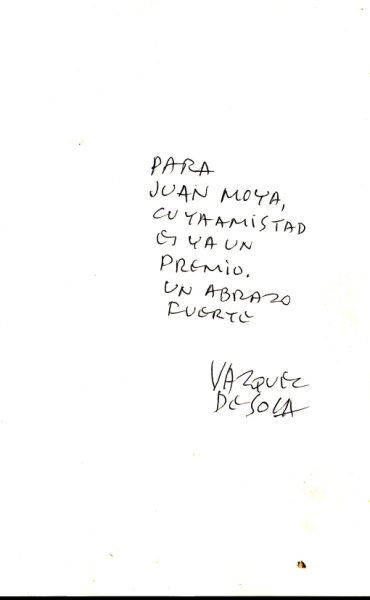 PARA
JUAN MOYA,
CUYA AMISTAD
ES YA UN
PREMIO.
UN ABRAZO
FUERTE
VAZQUEZ
DE SOLA